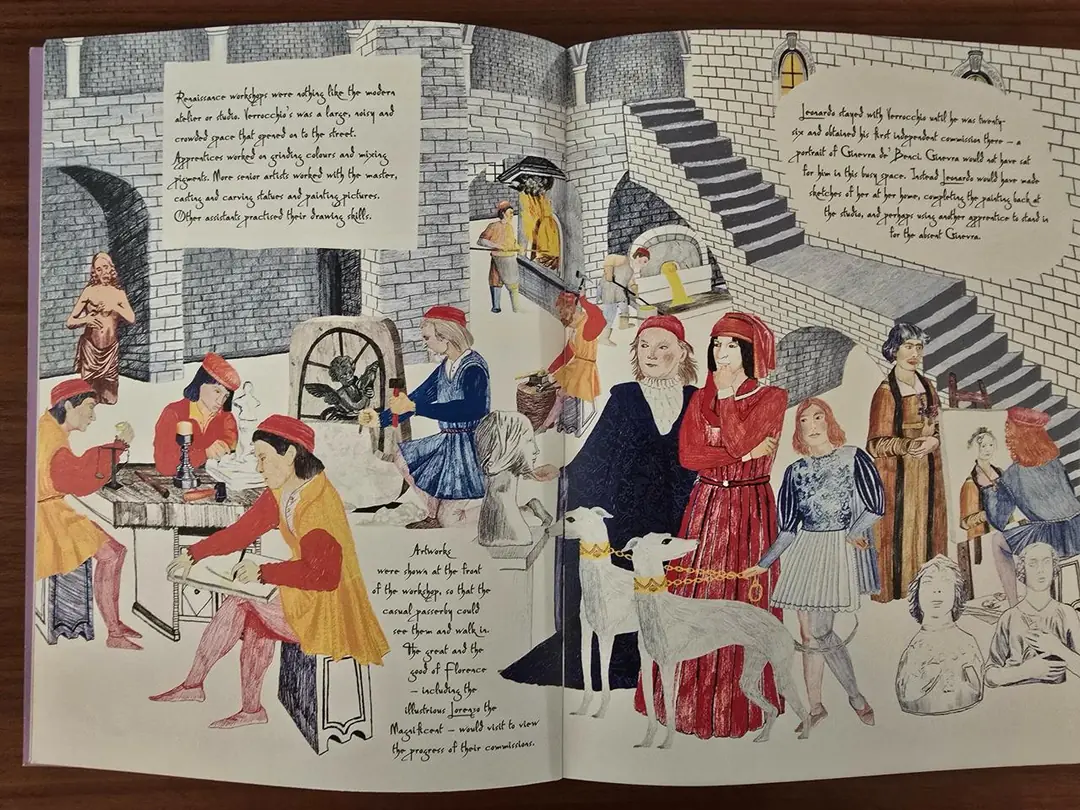 Renaissance workshops were nothing like the modern
atelier or studio. Verrocchio's was a large, noisy and
crowded space that opened on to the street.
Apprentices worked on grinding colours and mixing
pigments. More senior artists worked with the master,
casting and carving statues and painting pictures.
Other assistants practised their drawing skills.
Artworks
were shown at the front
of the workshop, so that the
casual passerby could
see them and walk in.
The great and the
good of Florence
– including the
illustrious Lorenzo the
Magnificent – would visit to view
the progress of their commissions.
Leonardo stayed with Verrocchio until he was twenty-
six and obtained his first independent commission there – a
portrait of Ginevra de' Benci. Ginevra would not have sat
for him in this busy space. Instead Leonardo would have made
sketches of her at her home, completing the painting back at
the studio, and perhaps using another apprentice to stand in
for the absent Ginevra.